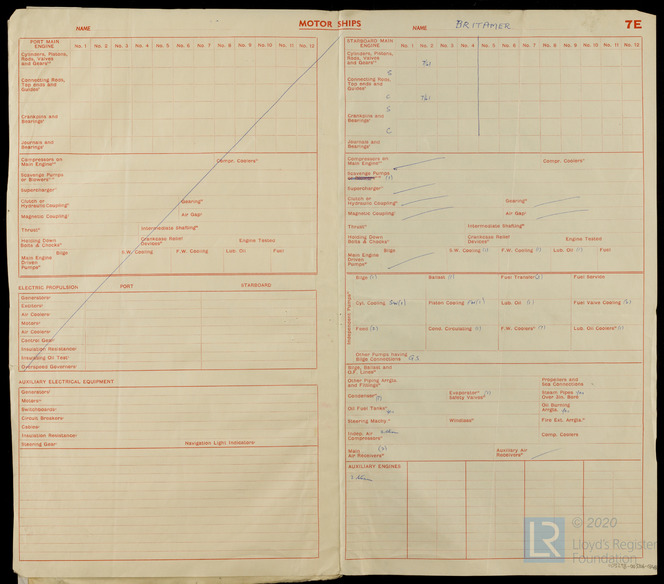 MOTOR SHIPS
NAME
PORT MAIN ENGINE No. 1 No. 2 No. 3 No. 4 No. 5 No. 6 No. 7 No. 8 No. 9 No. 10 No. 11 No. 12
Cylinders, Pistons,
Rods, Valves
and Gears
Connecting Rods,
Top ends and
Guides
Crankpins and
Bearings
Journals and
Bearings
Compressors on
Main Engine
Compr. Coolers
Scavenge Pumps
or Blowers
Supercharger
Clutch or
Hydraulic Coupling
Gearing
Magnetic Coupling
Air Gap
Thrust
Intermediate Shafting
Holding Down
Bolts & Chocks
Crankcase Relief
Devices
Engine Tested
Main Engine
Driven
Pumps
Bilge S.W. Cooling F.W. Cooling Lub. Oil Fuel
ELECTRIC PROPULSION PORT STARBOARD
Generators
Exciters
Air Coolers
Motors
Air Coolers
Control Gear
Insulation Resistance
Insulating Oil Test
Overspeed Governors
AUXILIARY ELECTRICAL EQUIPMENT
Generators
Motors
Switchboards
Circuit Breakers
Cables
Insulation Resistance
Steering Gear
Navigation Light Indicators
NAME BRITAMER 7E
STARBOARD MAIN ENGINE No. 1 No. 2 No. 3 No. 4 No. 5 No. 6 No. 7 No. 8 No. 9 No. 10 No. 11 No. 12
Cylinders, Pistons,
Rods, Valves
and Gears
S
Connecting Rods,
Top ends and
Guides
C
S
Crankpins and
Bearings
C
Journals and
Bearings
Compressors on
Main Engine
Compr. Coolers
Scavenge Pumps
Supercharger
Clutch or
Hydraulic Coupling
Gearing
Magnetic Coupling
Air Gap
Thrust
Intermediate Shafting
Holding Down
Bolts & Chocks
Crankcase Relief
Devices
Engine Tested
Main Engine
Driven
Pumps
Bilge S.W. Cooling F.W. Cooling Lub. Oil Fuel
Independent Pumps
Bilge Ballast Fuel Transfer Fuel Service
Cyl. Cooling Piston Cooling Lub. Oil Fuel Valve Cooling
Feed Cond. Circulating F.W. Coolers Lub. Oil Coolers
Other Pumps having
Bilge Connections G.S.
Bilge, Ballast and
O.F. Lines
Other Piping Arrgts.
and Fittings
Propellers and
Sea Connections
Condenser
Evaporator
Safety Valves
Steam Pipes
Over 3in. Bore
Oil Fuel Tanks
Oil Burning
Arrgts.
Steering Machy.
Windlass
Fire Ext. Arrgts.
Indep. Air
Compressors
Comp. Coolers
Main
Air Receivers
Auxiliary Air
Receivers
AUXILIARY ENGINES
LR
© 2020
Lloyd's Register
Foundation